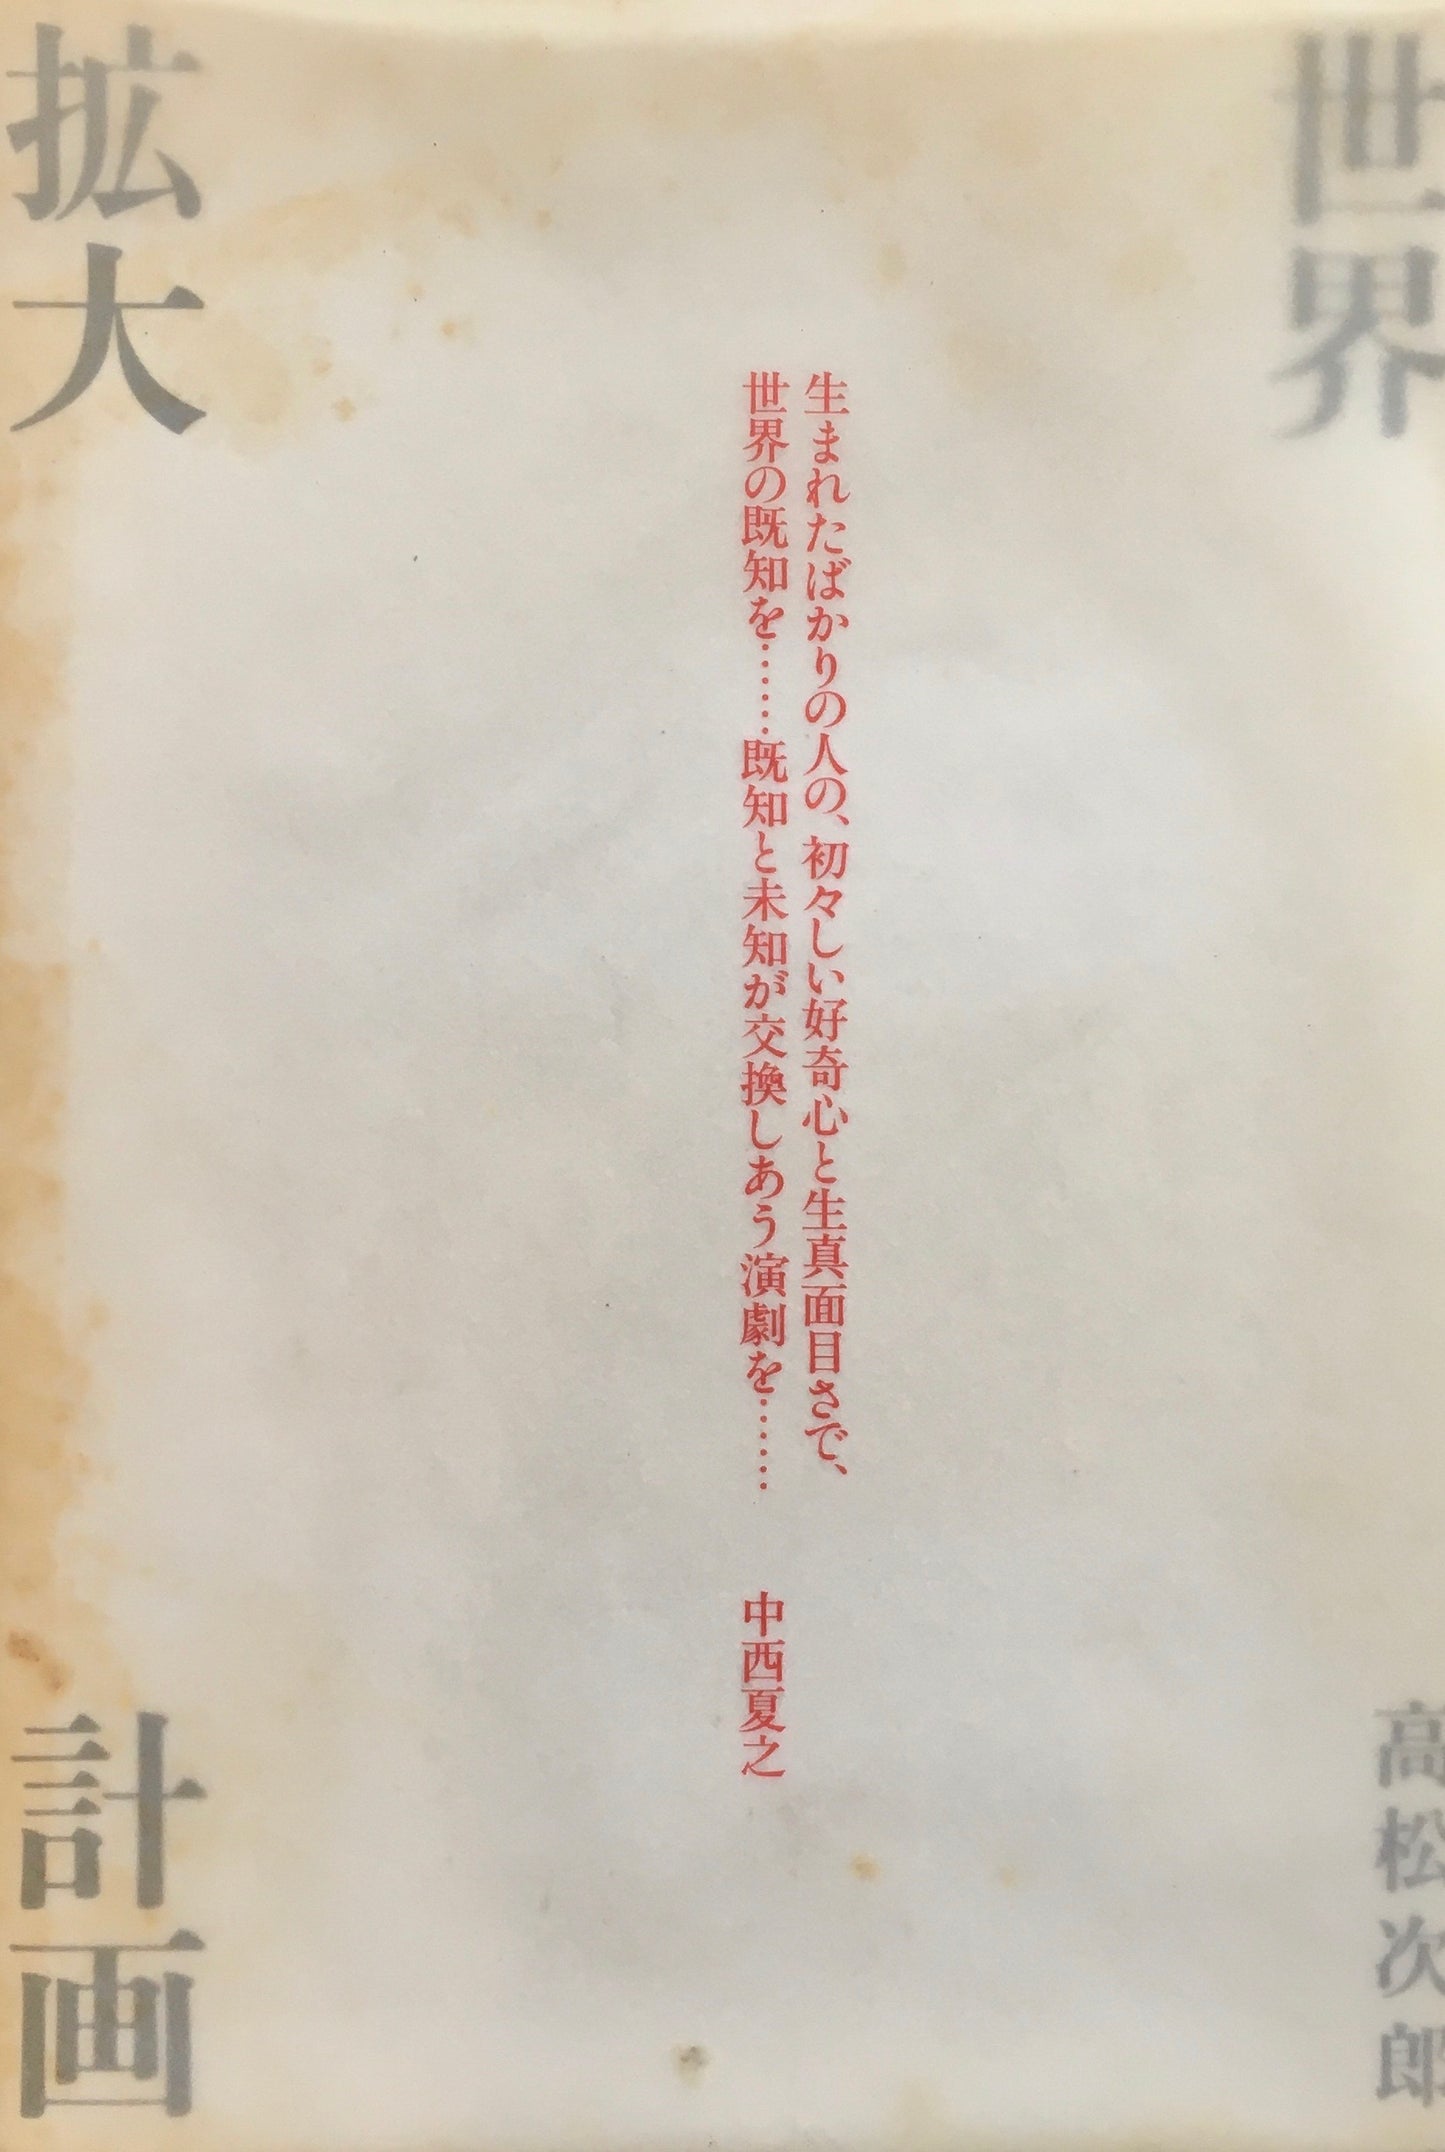 世界
拡大
計画
高松次郎
生まれたばかりの人の、初々しい好奇心と生真面目さで、
世界の既知を……既知と未知が交換しあう演劇を……
中西夏之